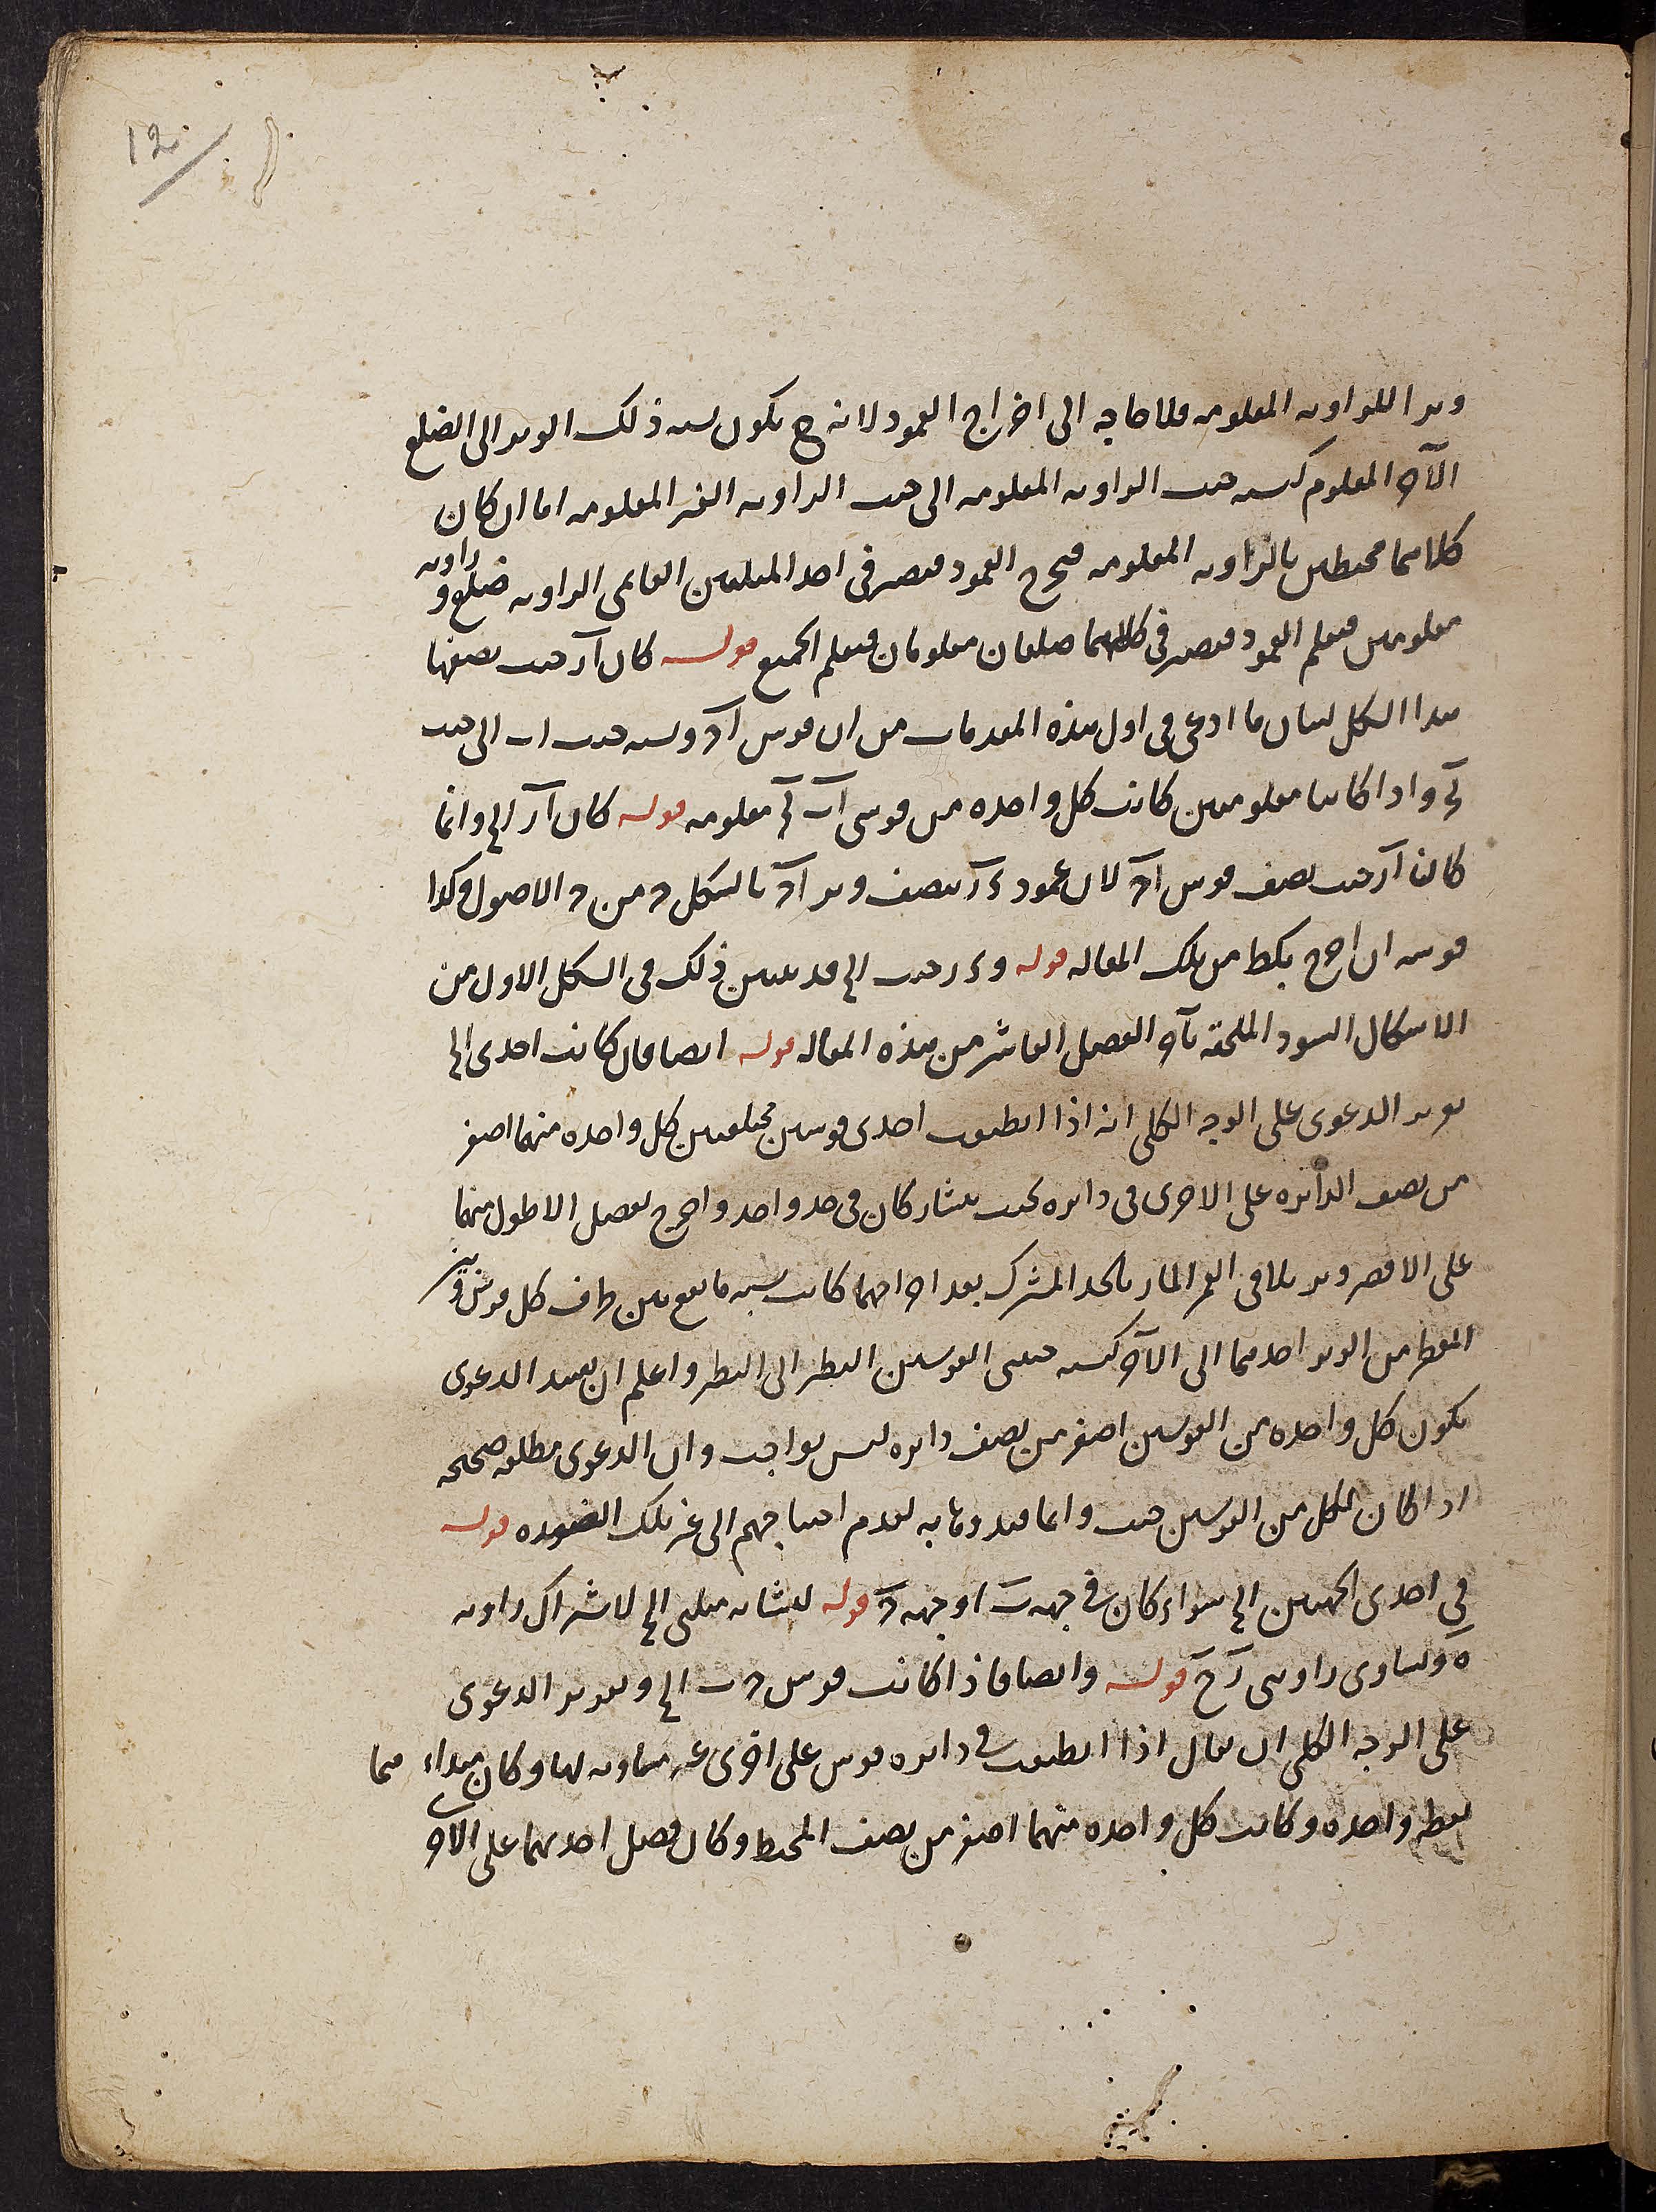 12
وتر اللزاوية المعلومة فلا حاجة الى اخراج العمود لانه ح يكون نسبة ذلك الوتر الى الضلع
الآخر المعلوم كنسبة جيب الزاوية المعلومة الى جيب الزاوية الغير المعلومة اما ان كان
كلاهما محيطين بالزاوية المعلومة فيخرج العمود فيصير فى احد المثلثين القائمى الزاوية ضلع و زاوية
معلومين فيعلم العمود فيصير فى كلاهما ضلعان معلومان فيعلم الجميع قوله كان آر جيب نصفها
هذا الشكل لبيان ما ادعى فى اول هذه المقدمات من ان قوس آج ونسبة جيب اب الى جيب
بج واذا كانتا معلومتين كانت كل واحدة من قوسى آب بج معلومة قوله كان آر الخ وانما
كان آر جيب نصف قوس آج لان عمود ءر ينصف وتر آج بالشكل ج من ج الاصول وكذا
قوسه ان اخرج بكط من تلك المقالة قوله وءر جيب الخ قد تبين ذلك فى الشكل الاول من
الاشكال السود الملحقة بآخر الفصل العاشر من هذه المقالة قوله ايضا فان كانت احدى الخ
تقرير الدعوى على الوجه الكلى انه اذا انطبقت احدى قوسين مختلفتين كل واحدة منهما اصغر
من نصف الدائرة على الاخرى فى دائرة بحيث يتشاركان فى حد واحد واخرج لفضل الاطول منهما
على الاقصر وتر يلاقى القطر المار بالحد المشترك بعد اخراجهما كانت نسبة ما يقع بين طرف كل قوس وبين
النقطة من الوتر احدهما الى الآخر كنسبة جيبى القوسين النظير الى النظير واعلم ان تقييد الدعوى
بكون كل واحدة من القوسين اصغر من نصف دائرة ليس بواجب وان الدعوى مطلقة صحيحة
اذا كان لكل من القوسين جيب وانما قيدوها به لعدم احتياجهم الى غير تلك الصورة قوله
فى احدى الجهتين الخ سواء كان فى جهة ب او جهة ج قوله لتشابه مثلثى الخ لاشتراك زاوية
ه وتساوى زاويتى ر ح قوله وايضا فاذا كانت قوس ج ب الخ وتقرير الدعوى
على الوجه الكلى ان يقال اذا انطبقت فى دائرة قوس على اخرى غير مساوية لها وكان مبداءهما
نقطة واحدة وكانت كل واحدة منهما اصغر من نصف المحيط وكان فضل احديهما على الآخر